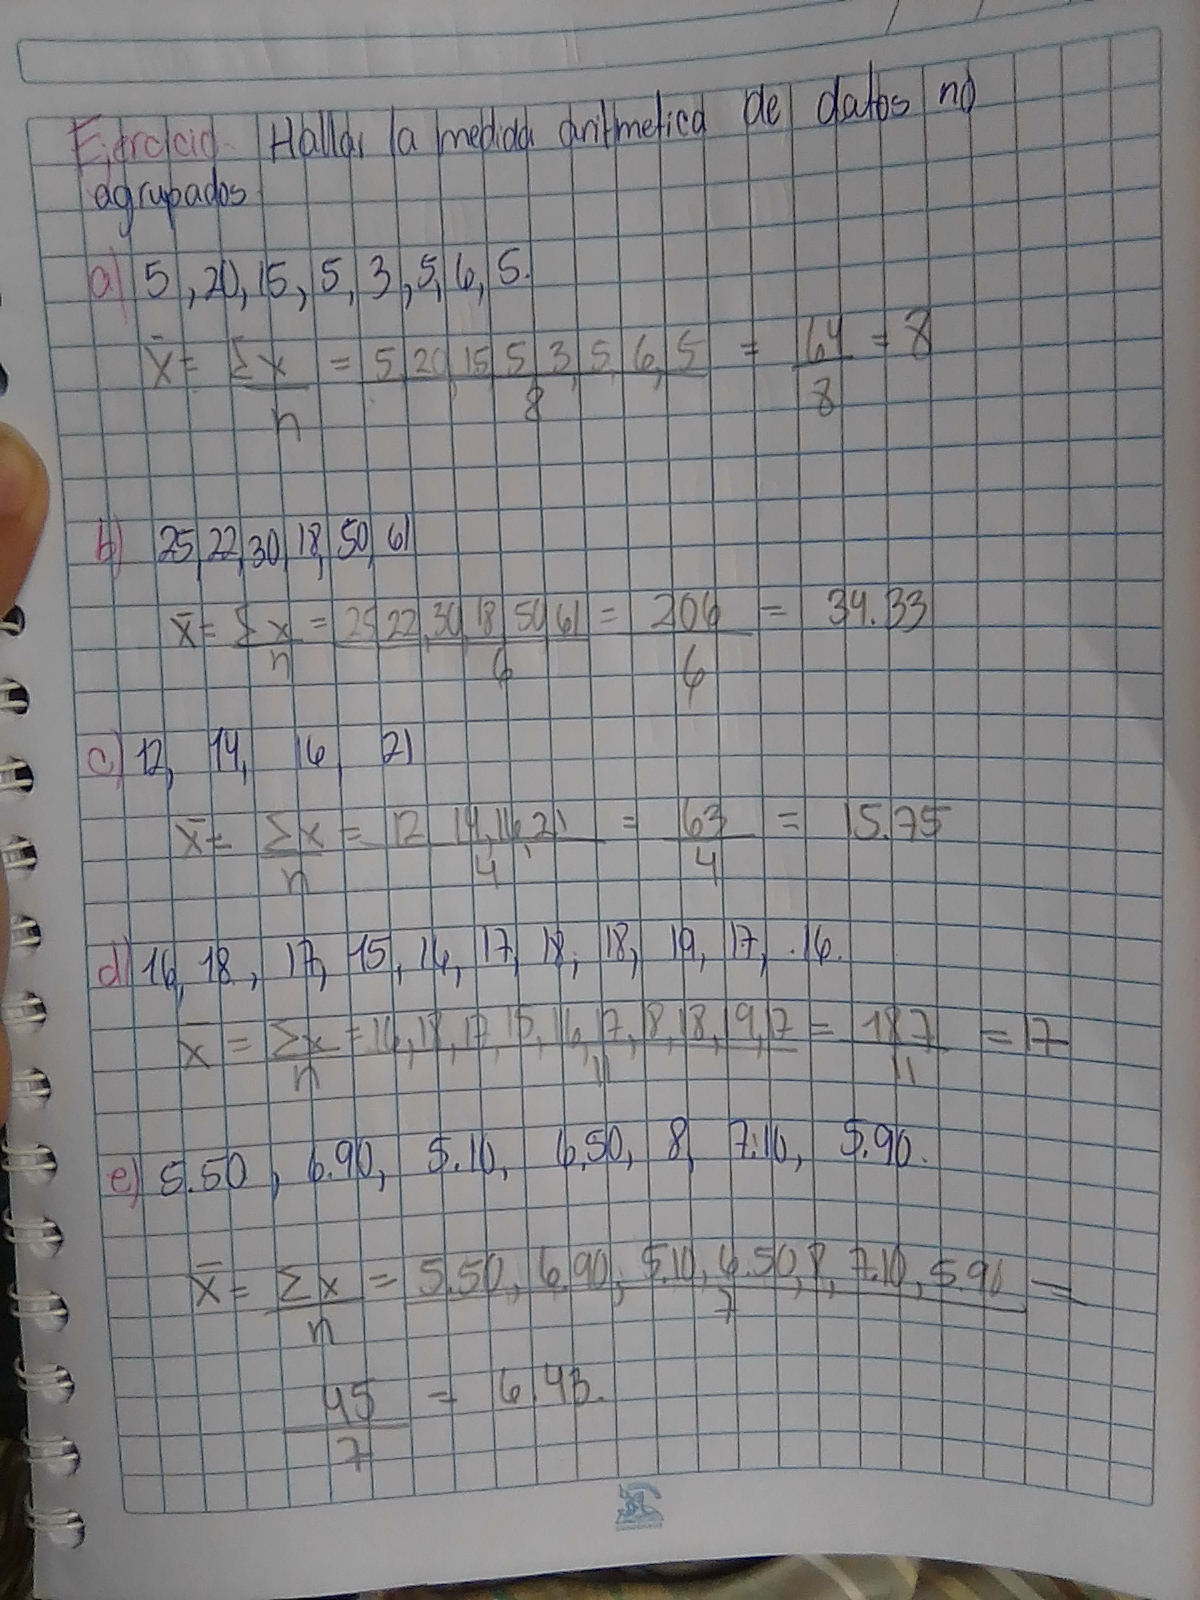 Ejercicio. Hallar la medida aritmetica de datos no
agrupados
a) 5, 20, 15, 5, 3, 5, 6, 5.
x̄ = Σx/n = 5, 20, 15, 5, 3, 5, 6, 5/8 = 64/8 = 8
b) 25, 22, 30, 18, 50, 61
x̄ = Σx/n = 25, 22, 30, 18, 50, 61/6 = 206/6 = 34.33
c) 12, 14, 16, 21
x̄ = Σx/n = 12, 14, 16, 21/4 = 63/4 = 15.75
d) 16, 18, 17, 15, 16, 17, 18, 18, 19, 17, .16.
x̄ = Σx/n = 16, 18, 17, 15, 16, 17, 18, 18, 19, 17/11 = 187/11 = 17
e) 5.50, 6.90, 5.10, 6.50, 8, 7.10, 5.90.
x̄ = Σx/n = 5.50, 6.90, 5.10, 6.50, 8, 7.10, 5.90/7 =
45/7 = 6.43.